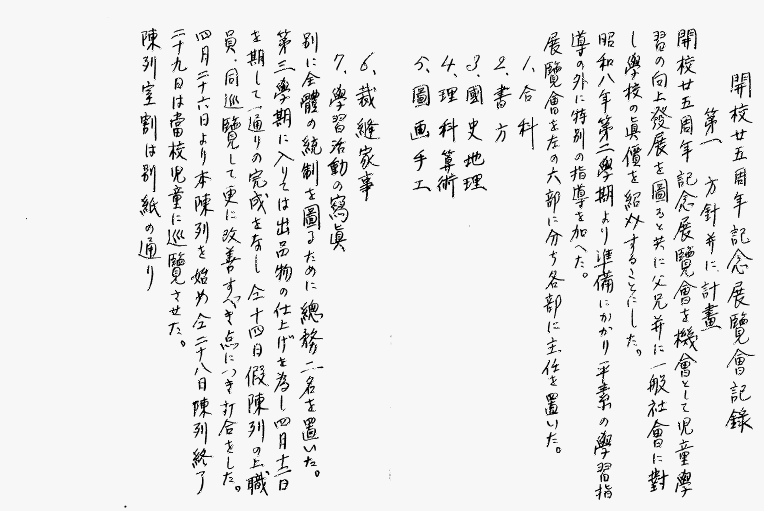 開校廿五周年記念展覽會記錄
第一 方針并に計畫
開校廿五周年記念展覽會を機會として児童學
習の向上發展を圖ると共に父兄并に一般社會に對
し學校の眞價を紹介することにした。
昭和八年第二學期より準備にかかり平素の學習指
導の外に特別の指導を加へた。
展覽會を左の六部に分ち各部に主任を置いた。
1、合科
2、書方
3、國史地理
4、理科算術
5、圖画手工
6、裁縫家事
7、學習活動の寫眞
別に全體の統制を圖るために總務二名を置いた。
第三學期に入りては出品物の仕上げを為し四月十二日
を期して一通りの完成をなし仝十四日假陳列の上職
員、同巡覽して更に改善すべき点につき打合をした。
四月二十六日より本陳列を始め仝二十八日陳列終了
二十九日は當校児童に巡覽させた。
陳列室割は別紙の通り